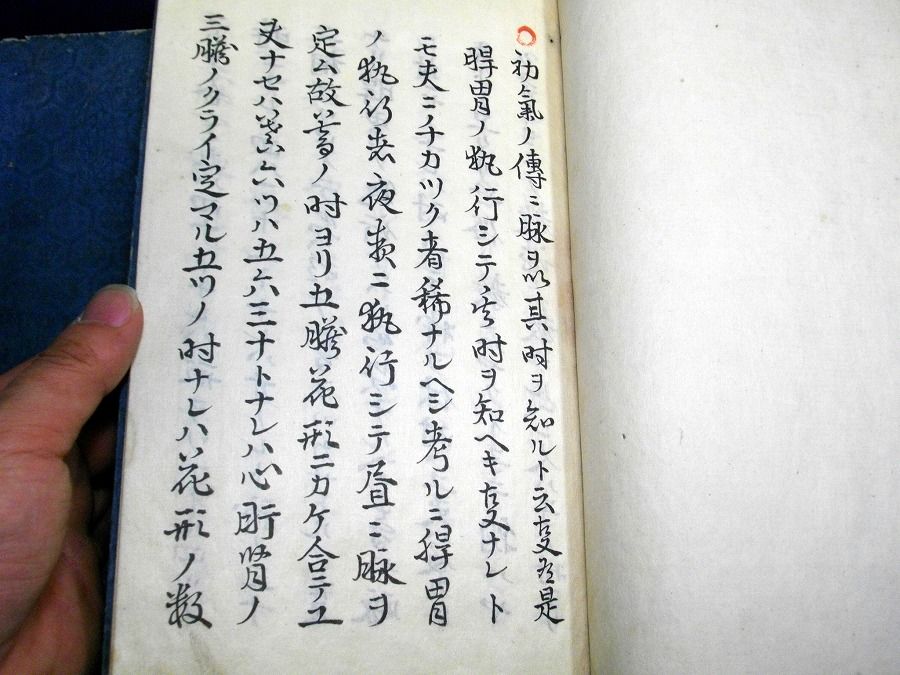 ○初氣ノ傳ニ脉ヲ以其時ヲ知ルト云支有是
脾胃ノ執行シテ其時ヲ知ヘキ支ナレト
モ夫ニチカツク者稀ナルヘシ考ルニ脾胃
ノ執行者夜ニ執行シテ昼ニ脉ヲ
定ム故ノ时ヨリ五臓花形ニカケ合テユ
ナセハ六ツハ五六三十トナレハ心肝腎ノ
三臓ノクライ定マル五ツノ时ナレハ花形ノ数